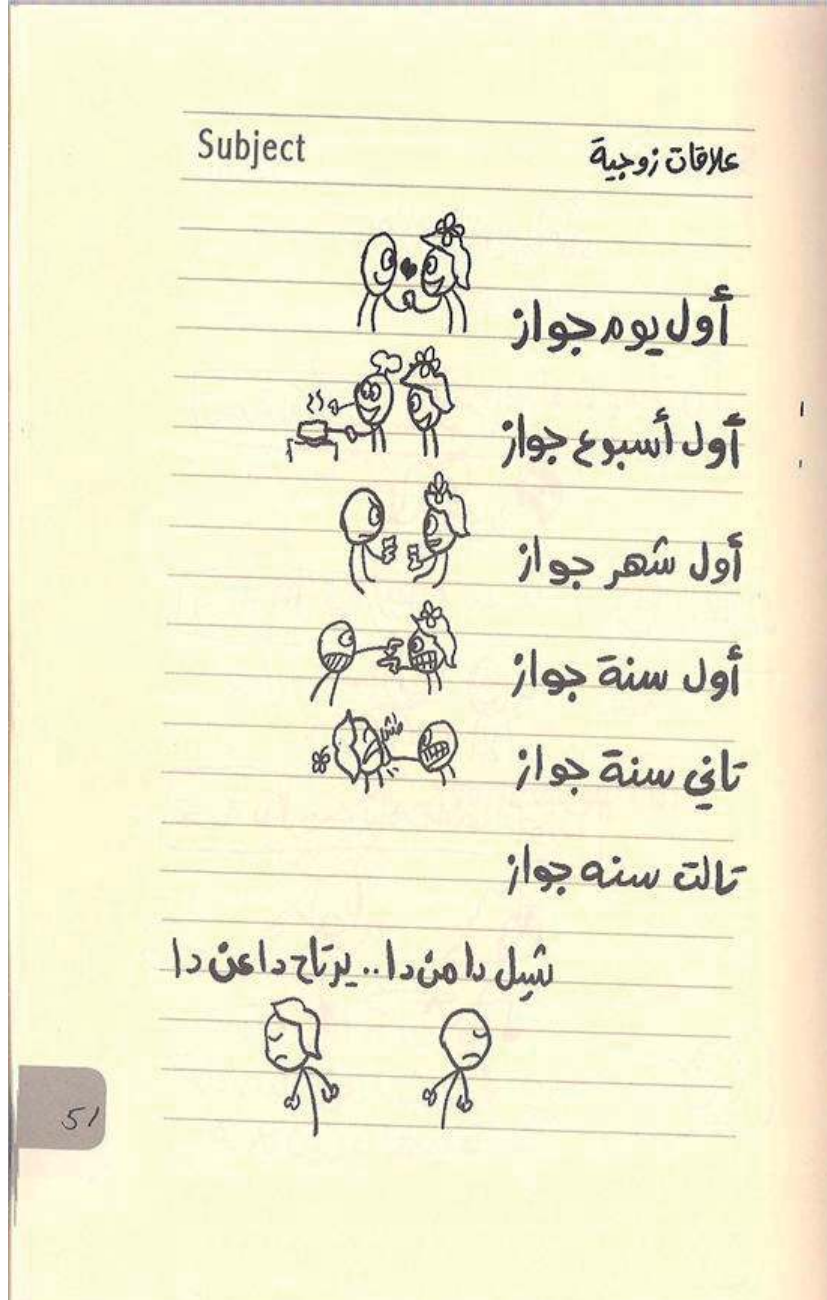 Subject علاقات زوجية
أول يوم جواز
أول أسبوع جواز
أول شهر جواز
أول سنة جواز
تاني سنة جواز
تالت سنه جواز
شيل دا من دا.. يرتاح دا عن دا
51